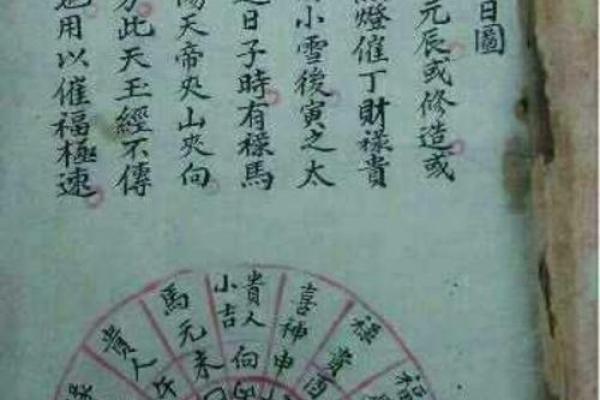 日圖
元辰或修造或
燈催丁財祿貴
小雪後寅之太
日子時有祿馬
天帝夾山夾向
此天玉經不傳
也用以催福極速
貴人
馬元未
小吉
貴人
向
喜神申
祿貴酉
福